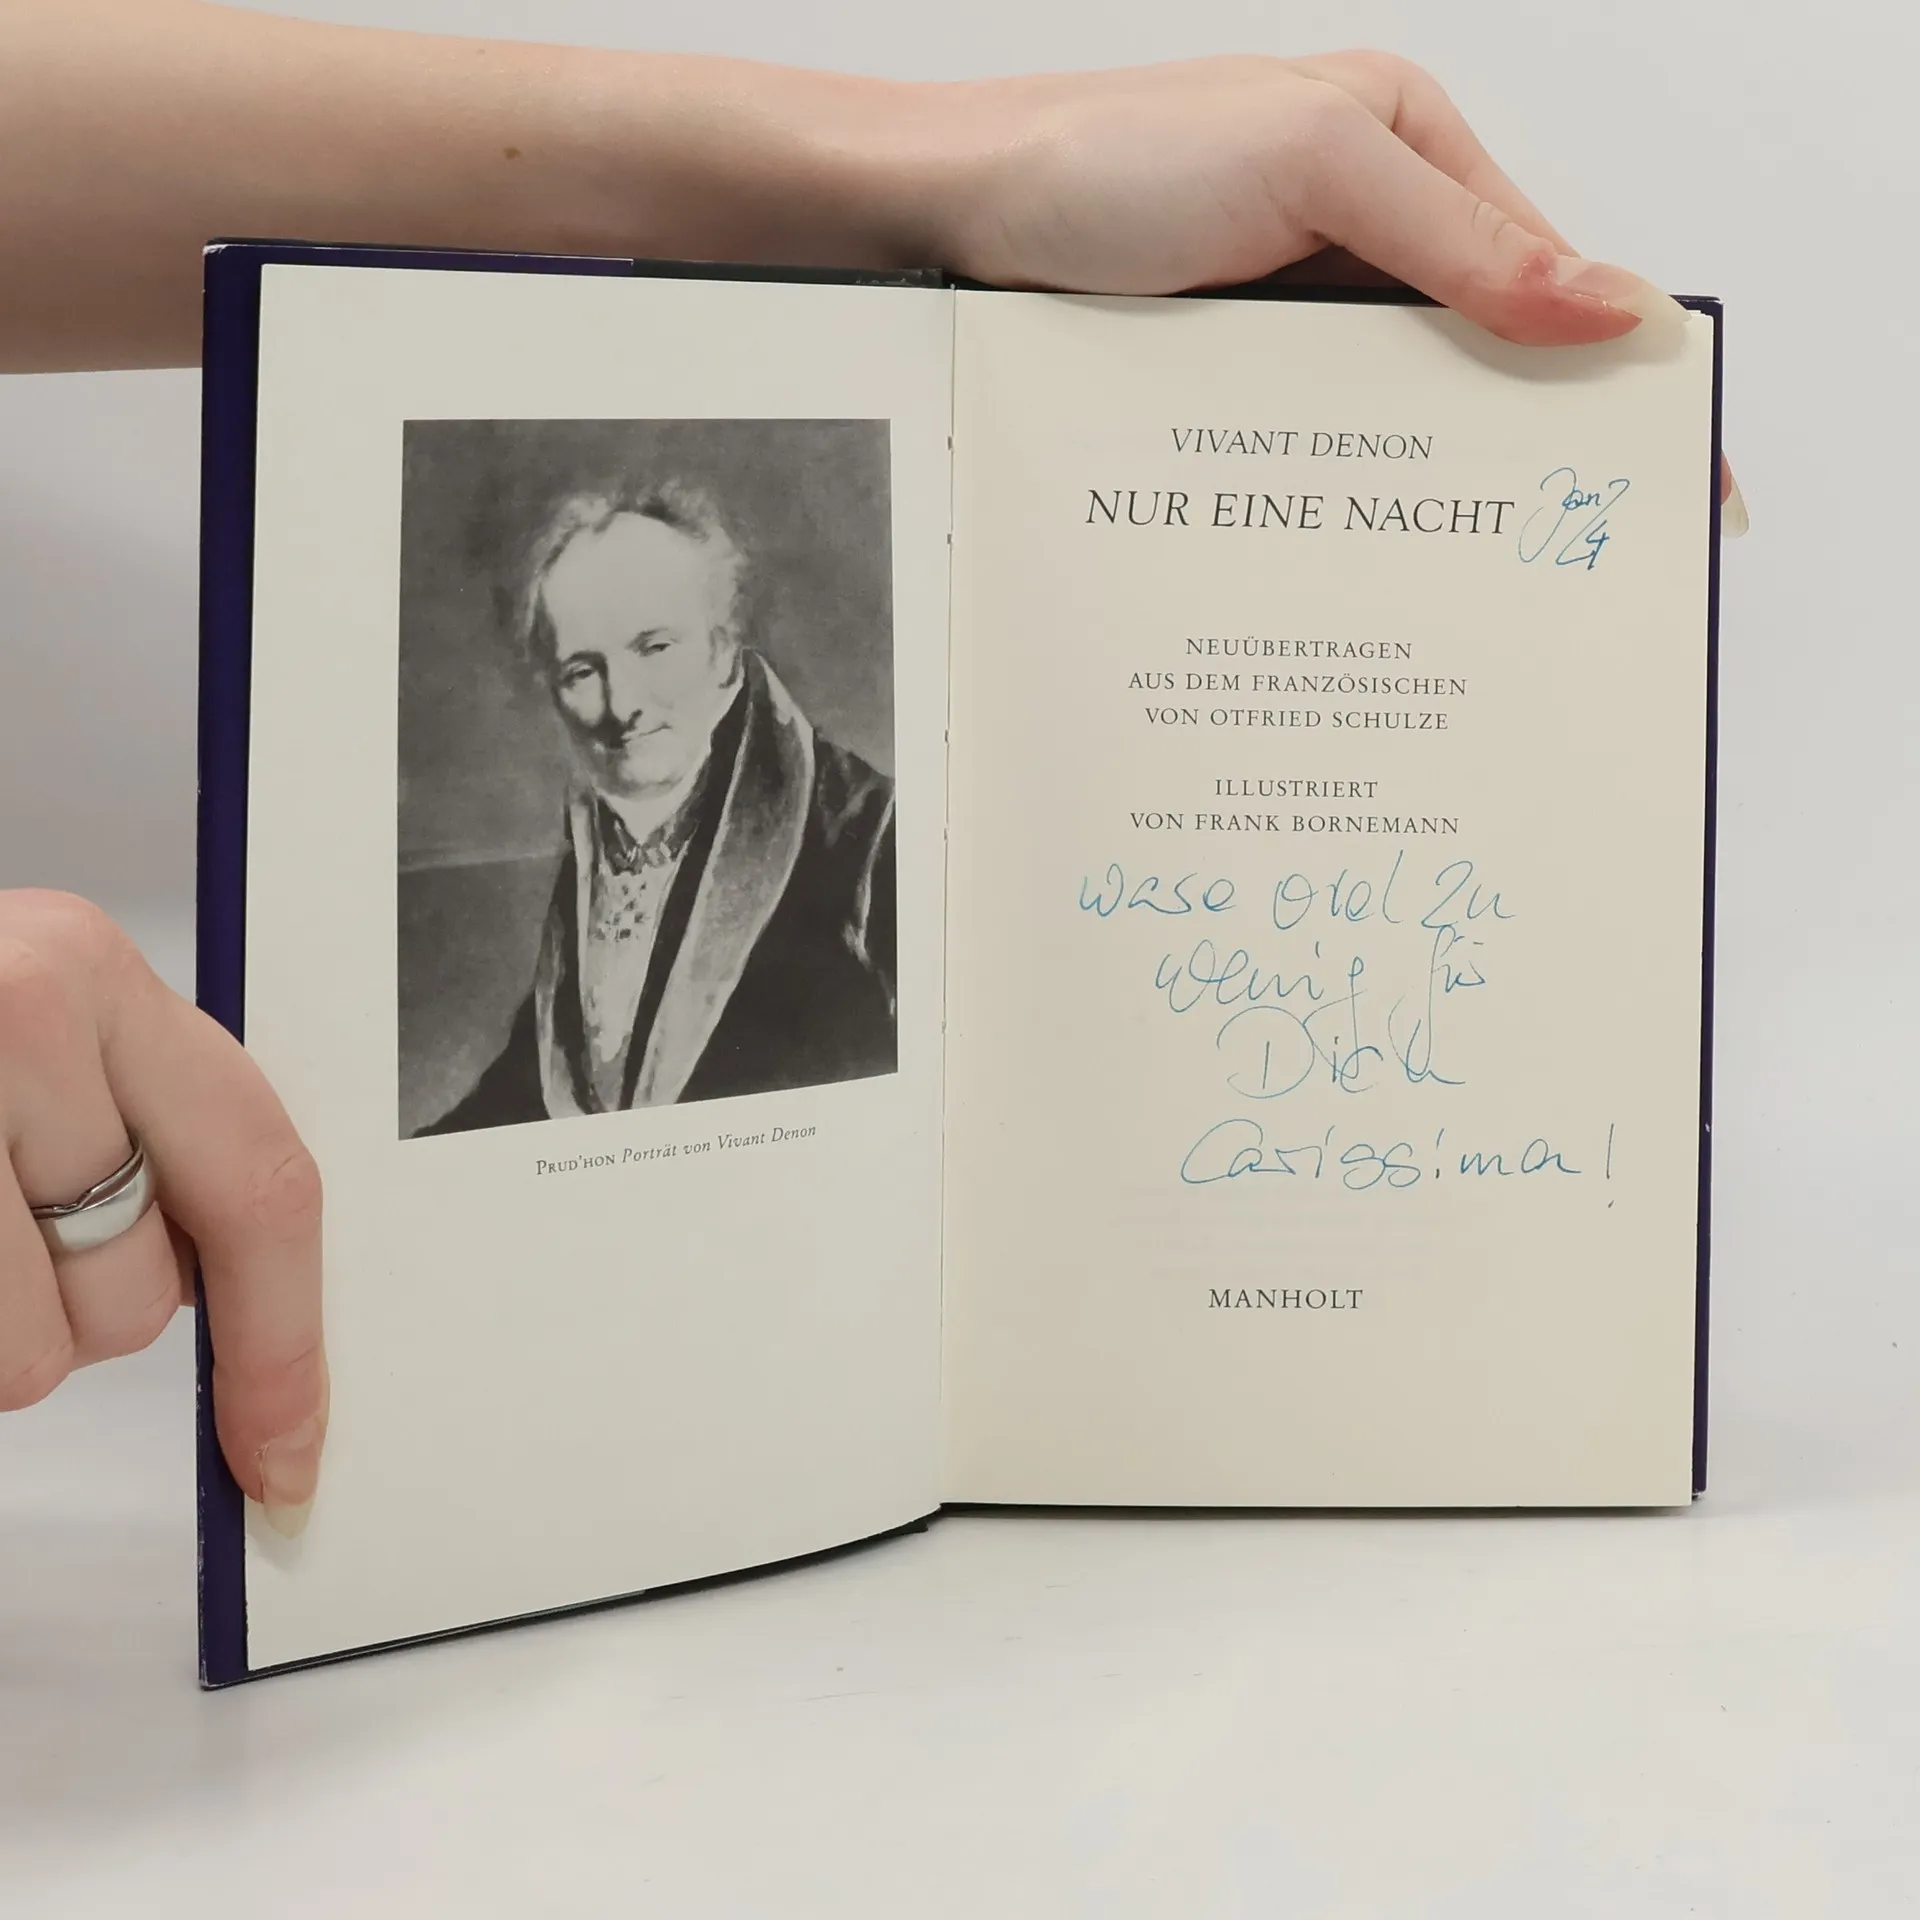 PRUD'HON Porträt von Vivant Denon
VIVANT DENON
NUR EINE NACHT
NEUÜBERTRAGEN
AUS DEM FRANZÖSISCHEN
VON OTFRIED SCHULZE
ILLUSTRIERT
VON FRANK BORNEMANN
viel zu
wenig für
Dich
Carissima!
MANHOLT